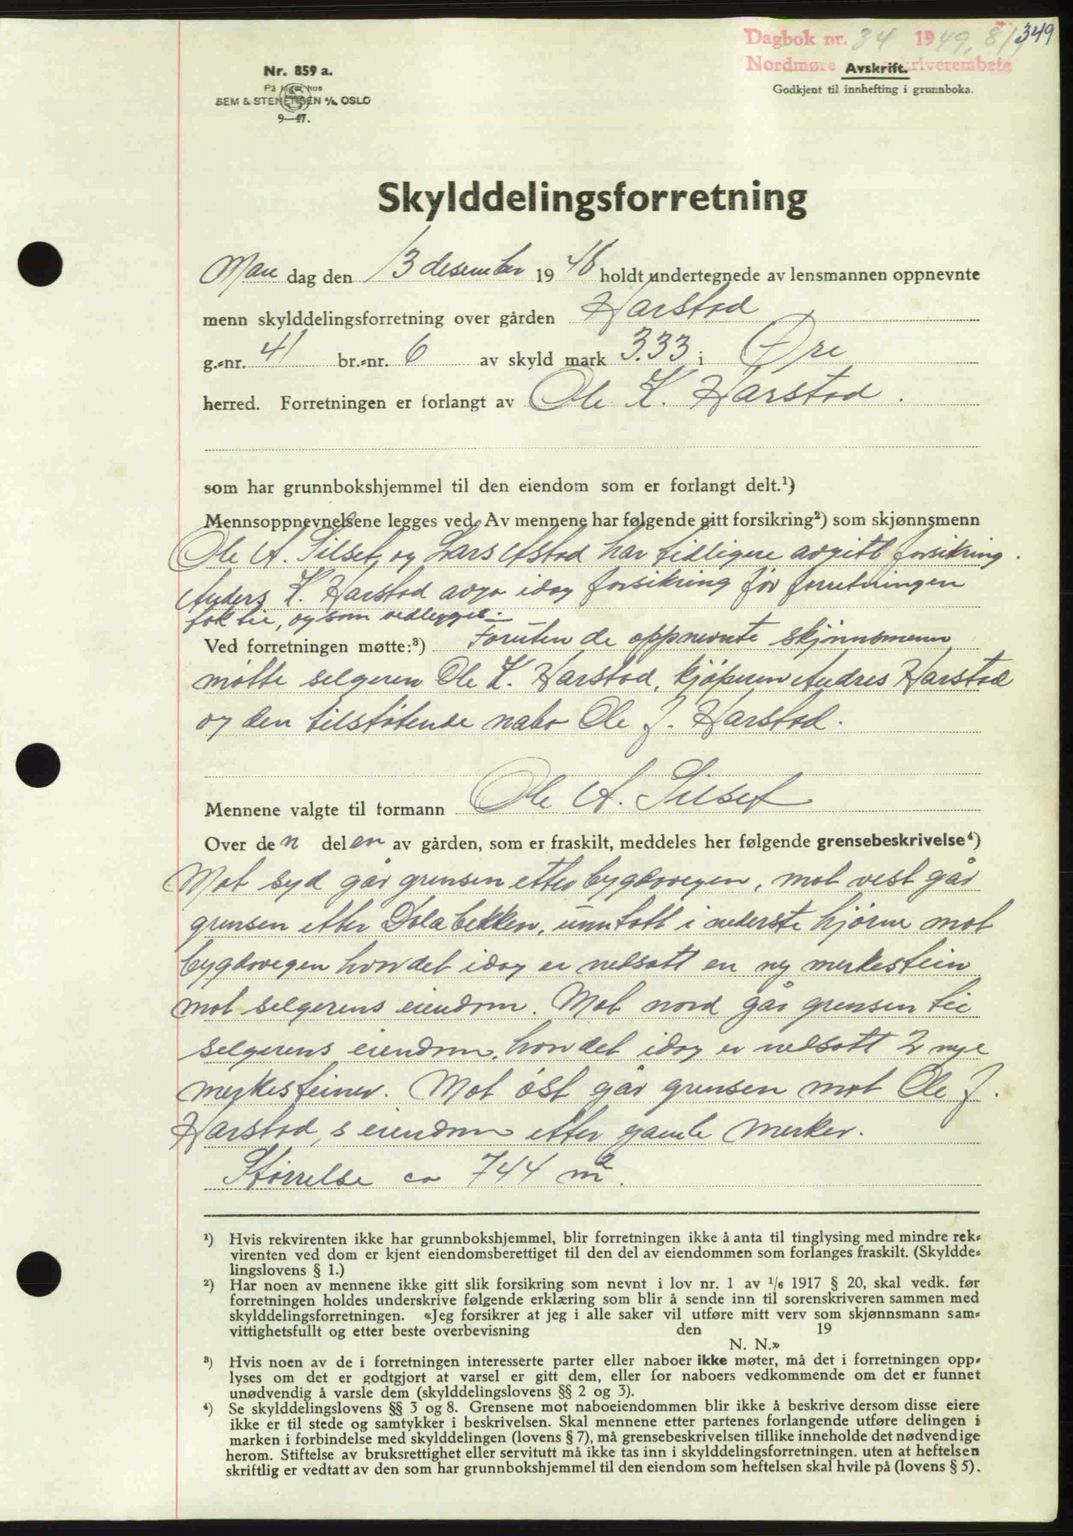 Dagbok nr. 34 1949, 8/1 349
Nordmøre skriverembete
Avskrift.
Godkjent til innhefting i grunnboka.
Nr. 859 a.
På lager hos
SEM & STENERSEN A/S, OSLO
9—47.
Skylddelingsforretning
Man dag den 13 desember 1948 holdt undertegnede av lensmannen oppnevnte
menn skylddelingsforretning over gården Harstad
g.-nr. 41 br.-nr. 6 av skyld mark 3.33 i Øre
herred. Forretningen er forlangt av Ole K. Harstad.
som har grunnbokshjemmel til den eiendom som er forlangt delt.¹)
Mennsoppnevnelsene legges ved. Av mennene har følgende gitt forsikring²) som skjønnsmenn
Ole A. Silset og Lars Astad har tidligere avgitt forsikring.
Anders K. Harstad avga idag forsikring før forretningen
foktie, og som vedlegges.
Ved forretningen møtte:³) Foruten de oppnevnte skjønnsmenn
møtte selgeren Ole K. Harstad, kjøperen Andres Harstad
og den tilstøtende nabo Ole J. Harstad.
Mennene valgte til formann Ole A. Silset
Over den delen av gården, som er fraskilt, meddeles her følgende grensebeskrivelse⁴)
Mot syd går grensen etter bygdevegen, mot vest går
grensen etter Dølabekken, unntatt i nederste hjørne mot
bygdevegen hvor det idag er nedsatt en ny merkestein
mot selgerens eiendom. Mot nord går grensen til
selgerens eiendom, hvor det idag er nedsatt 2 nye
merkesteiner. Mot øst går grensen mot Ole J.
Harstad,s eiendom etter gamle merker.
Størrelse ca 744 m².
¹) Hvis rekvirenten ikke har grunnbokshjemmel, blir forretningen ikke å anta til tinglysing med mindre rek-
virenten ved dom er kjent eiendomsberettiget til den del av eiendommen som forlanges fraskilt. (Skyldde-
lingslovens § 1.)
²) Har noen av mennene ikke gitt slik forsikring som nevnt i lov nr. 1 av 1/6 1917 § 20, skal vedk. før
forretningen holdes underskrive følgende erklæring som blir å sende inn til sorenskriveren sammen med
skylddelingsforretningen. «Jeg forsikrer at jeg i alle saker vil utføre mitt verv som skjønnsmann sam-
vittighetsfullt og etter beste overbevisning den 19
N. N.»
³) Hvis noen av de i forretningen interesserte parter eller naboer ikke møter, må det i forretningen opp-
lyses om det er godtgjort at varsel er gitt dem, eller for naboers vedkommende om det er funnet
unødvendig å varsle dem (skylddelingslovens §§ 2 og 3).
⁴) Se skylddelingslovens §§ 3 og 8. Grensene mot naboeiendommen blir ikke å beskrive dersom disse eiere
ikke er til stede og samtykker i beskrivelsen. Skal mennene etter partenes forlangende utføre delingen i
marken i forbindelse med skylddelingen (lovens § 7), må grensebeskrivelsen tillike inneholde det nødvendige
herom. Stiftelse av bruksrettighet eller servitutt må ikke tas inn i skylddelingsforretningen, uten at heftelsen
skriftlig er vedtatt av den som har grunnbokshjemmel til den eiendom som heftelsen skal hvile på (lovens § 5).